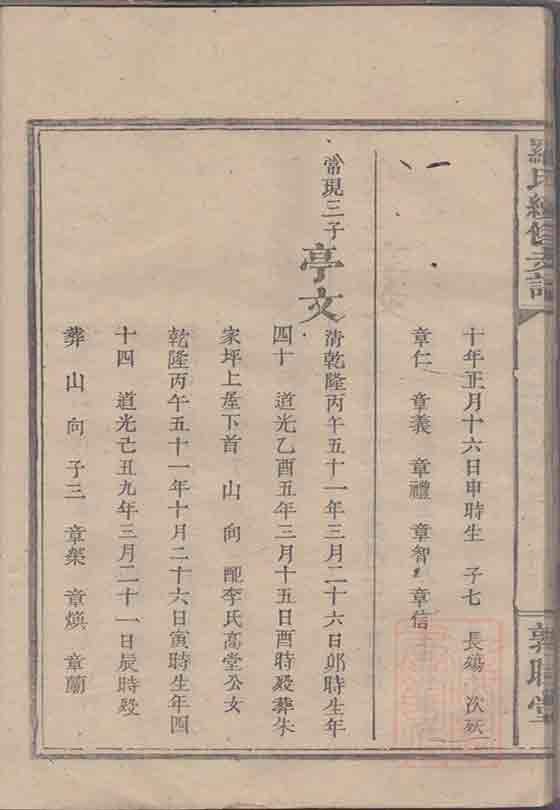 羅氏續修支譜
敦睦堂
十年正月十六日申時生 子七 長殤 次殀
章仁 章義 章禮 章智 章信
常現三子
亭文
清乾隆丙午五十一年三月二十六日卯時生年
四十 道光乙酉五年三月十五日酉時殁葬朱
家坪上屋下首 山 向 配李氏高堂公女
乾隆丙午五十一年十月二十六日寅時生年四
十四 道光己丑九年三月二十一日辰時殁
葬 山 向 子三 章榮 章煥 章蘭